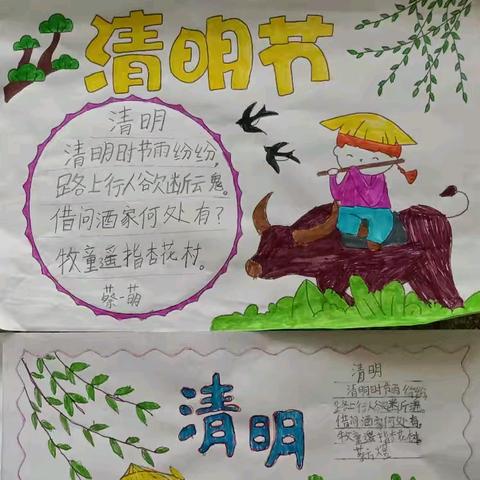 清明节
清明
清明时节雨纷纷,
路上行人欲断云鬼。
借问酒家何处有?
牧童遥指杏花村。
蔡一萌
清明
清明
清明时节雨纷纷
路上行人欲断魂。
借问酒家何处有,
牧童遥指杏花村。